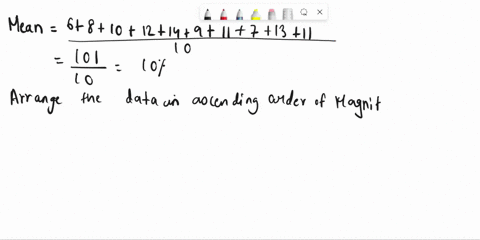 Mean = 6+8+10+12+14+9+11+7+13+11
10
= 101
10
= 10%
Arrange the data in ascending order of Magnit